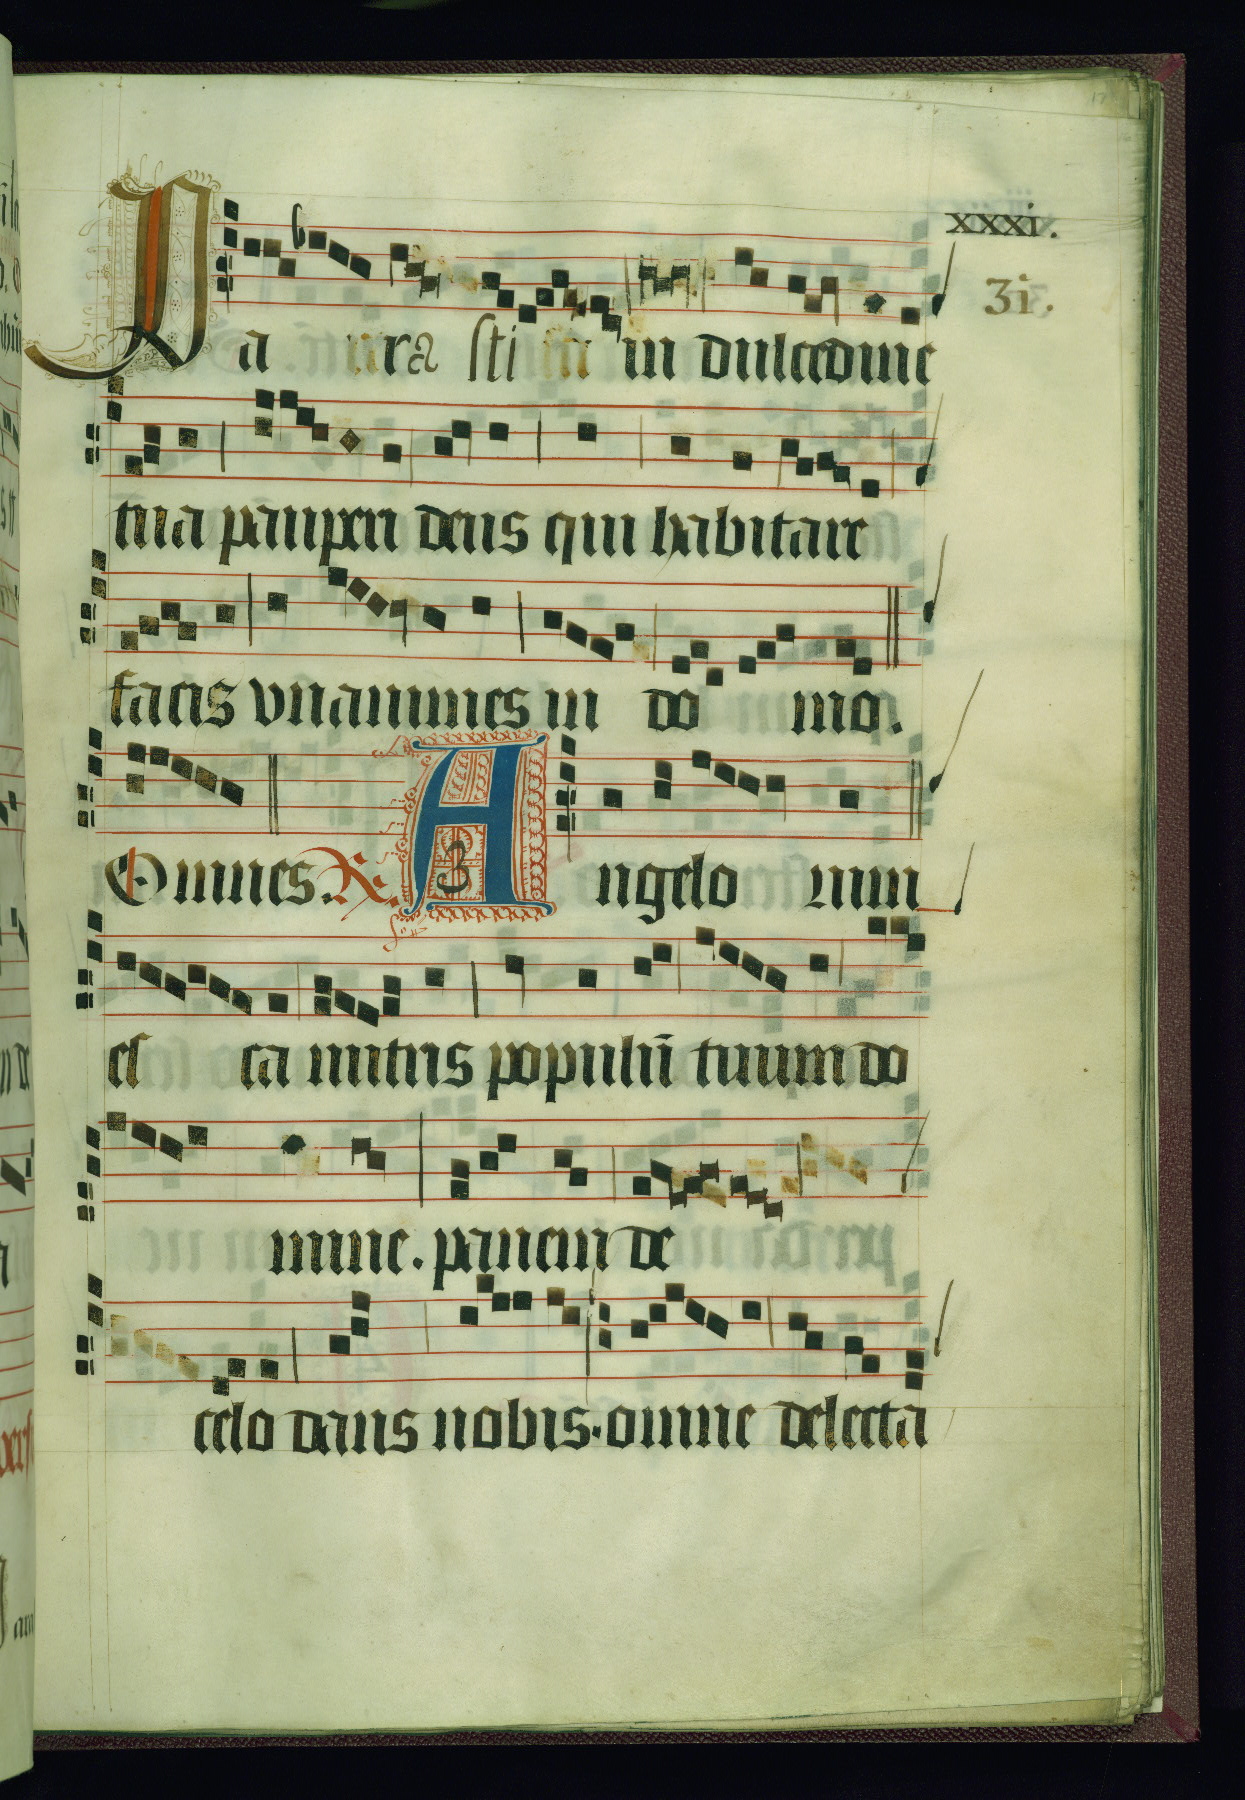 xxxi.
3i.
Pa ra sti in dulcedine
tua pauperi deus qui habitare
facis vnanimes in do mo.
Omnes. R. Angelo rum
3
es ca nutris populū tuum do
mine. panem de
celo dans nobis. omne delecta